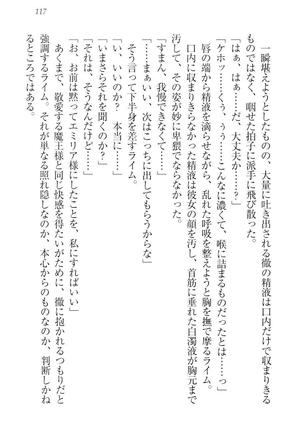 117
一瞬堪えようとしたものの、大量に吐き出される徹の精液は口内だけで収まりきる
ものではなく、咽せた拍子に派手に飛び散った。
「はぁ、はぁ……だ、大丈夫か……？」
「ケホッ……くっ、ぅ……こんなに濃くて、喉に詰まるものだったとは……っ」
唇の端から精液を滴らせながら、乱れた呼吸を整えようと胸を撫で摩るライム。
口内に収まりきらなかった精液は彼女の顔を汚し、首筋に垂れた白濁液が胸元まで
汚して、その姿が妙に卑猥でならなかった。
「すまん、我慢できなくて……」
「……まぁいい、次はこっちに出してもらうからな」
そう言って下半身を差すライム。
「い、いいのか？　本当に……」
「いまさらそれを聞くのか？」
「それは、そうなんだけど……」
「お、お前は黙ってエミリア様にしたことを、私にすればいい」
あくまで、敬愛する魔王様と同じ快感を得たいがために、徹に抱かれるつもりだと
強調するライム。それが単なる照れ隠しなのか、本心からのものなのか、判断しかね
るところではある。